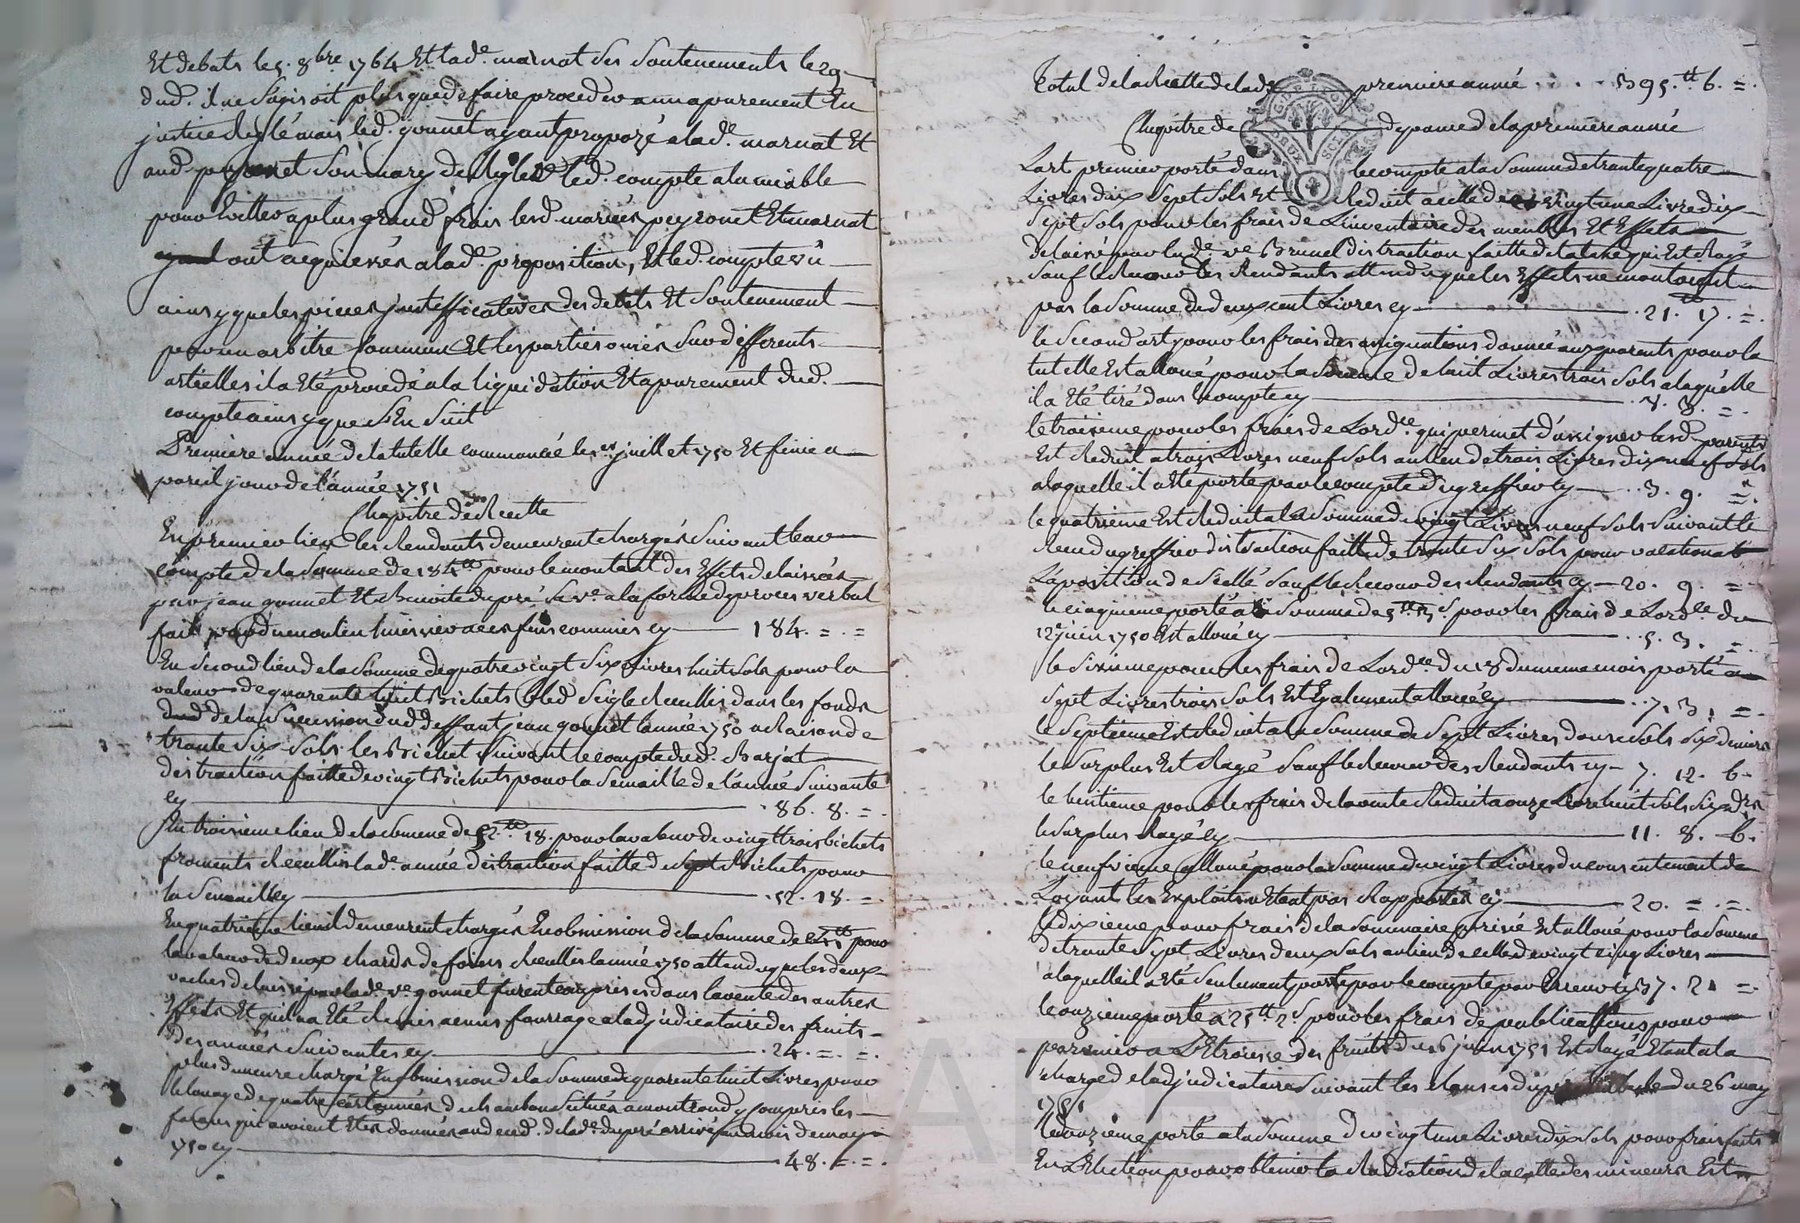 Et debats le 5. 8bre 1764 Et lad.e marnat ses soutenements le 29
dud. il ne s'agissoit plus que de faire proceder a un apurement En
justice reglé mais led. gonnet ayant proposé a lad.e marnat Et
aud. peyronet son mary de regler led. compte a l'amiable
pour Eviter a plus grand frais lesd. mariés peyronet Et marnat
ont acquiescés a lad.e proposition, Et led. compte vû
ainsy que les pieces justifficatives des debats Et soutenement
par un arbitre commun Et les parties ouies sur differents
articlles il a Eté procedé a la liquidation Et apurement dud.
compte ainsy que s'En suit
Premiere année de la tutelle commancée le 1er juillet 1750 Et finie a
pareil jour de l'année 1751
Chapitre de Recette
En premier lieu les Rendants demeurent chargés suivant leur
compte de la somme de 184tt pour le montant des Effets delaissés
par jean gonnet Et Benoite dupré sa ve. a la forme du proces verbal
fait par dumoulin huissier a ces fins commis cy 184. = . =
En second lieu de la somme de quatre vingt six Livres huit sols pour la
valeur de quarente huit Bichets Bled seigle Recuillis dans les fonds
de la succession dud. deffunt jean gonnet l'année 1750 a Raison de
trante six sols les Bichet suivant le compte dud. Barjat
distraction faitte de vingt Bichets pour la semaille de l'année suivante
cy . 86. 8. =
En troisieme lieu de la somme de 52.tt 18. pour la valeur de vingt trois bichets
froments Recuillis lad.e année distraction faitte de sept Bichets pour
la semaille cy . 52. 18. =
En quatrieme lieu il demeurent chargés En obmission de la somme de 24tt pour
la valeur de deux chards de foins Recuillis l'année 1750 attendu que les deux
vaches delaissé par lad.e ve. gonnet furent comprises dans la vente des autres
Effets Et qu'il n'a Eté Remis aucuns fourrage a l'adjudicataire des fruits
des années suivantes cy . 24. = . =
plus demeure chargé En obmission de la somme de quarente huit Livres pour
le louage de quatre de chambon situées a montrond y compris les
façons qui avoient Etés données aud. de lad.e dupré arrivé au mois de may
1750 cy . 48. = . =
Total de la Recette de lad. premiere année . . 395.tt 6. =
Chapitre de depance de la premiere année
L'art. premier porté dans le compte a la somme de trante quatre
Livres dix sept sols Est Reduit a celle de vingt une Livre dix
sept sols pour les frais de L'inventaire des meubles Et Effets
delaissé par lad.e ve. Brunel distraction faitte de la taxe qui Est Rayé
sauf le Recour des Rendants attendu que les Effets ne montoient
pas la somme de deux cent Livres cy . 21. 17. =
le second art. pour les frais des assignations données aux parents pour la
tutelle Est alloué pour la somme de huit Livres trois sols a laquelle
il a Eté tiré dans le compte cy . 8. 3. =
le troisieme pour les frais de L'ord.ce qui permet d'assigner lesd. parents
Est Reduit a trois Livres neuf sols au lieu de trois Livres dix neuf sols
a laquelle il a Eté porté par le compte du greffier cy . . 3. 9. =
le quatrieme Est Reduit a la somme de vingt Livres neuf sols suivant le
Recu du greffier distraction faitte de trante six sols pour vacation a
L'aposition de scellé sauf le Recour des Rendants cy 20. 9. =
le cinquieme porté a la somme de 5tt 3.s pour les frais de L'ord.ce du
12 juin 1750 Est alloué cy . . 5. 3. =
le sixieme pour les frais de L'ord.ce du 18 du meme mois porté a
sept Livres trois sols Est Egalement alloué cy . . 7. 3. =
le septieme Est Reduit a la somme de sept Livres douse sols six deniers
le surplus Est Rayé sauf le Recour des Rendants cy 7. 12. 6.
le huitieme pour les frais de la vente Reduit a onze Livres huit sols six drs
le surplus Rayé cy 11. 8. 6.
le neufvieme alloué pour la somme de vingt Livres du consentement de
L'oyant les Exploits n'Etant pas Rapportés cy 20. = . =
le dixieme pour frais de la sommaire prisé Est alloué pour la somme
de trante sept Livres deux sols au lieu de celle de vingt cinq Livres
a laquelle il a Eté seulement porté par le compte par Erreur cy 37. 2. =
le onzieme porté a 25tt 2.s pour les frais de publications pour
parvenir a L'Etrousse des fruits du 6 juin 1751 Est Rayé Etant a la
charge de l'adjudicataire suivant les clauses du du 26 may
1751
le douzieme porté a la somme de vingt une Livres dix sols pour frais faits
En L'Election pour obtenir la Radiation de la cotte des mineurs Est